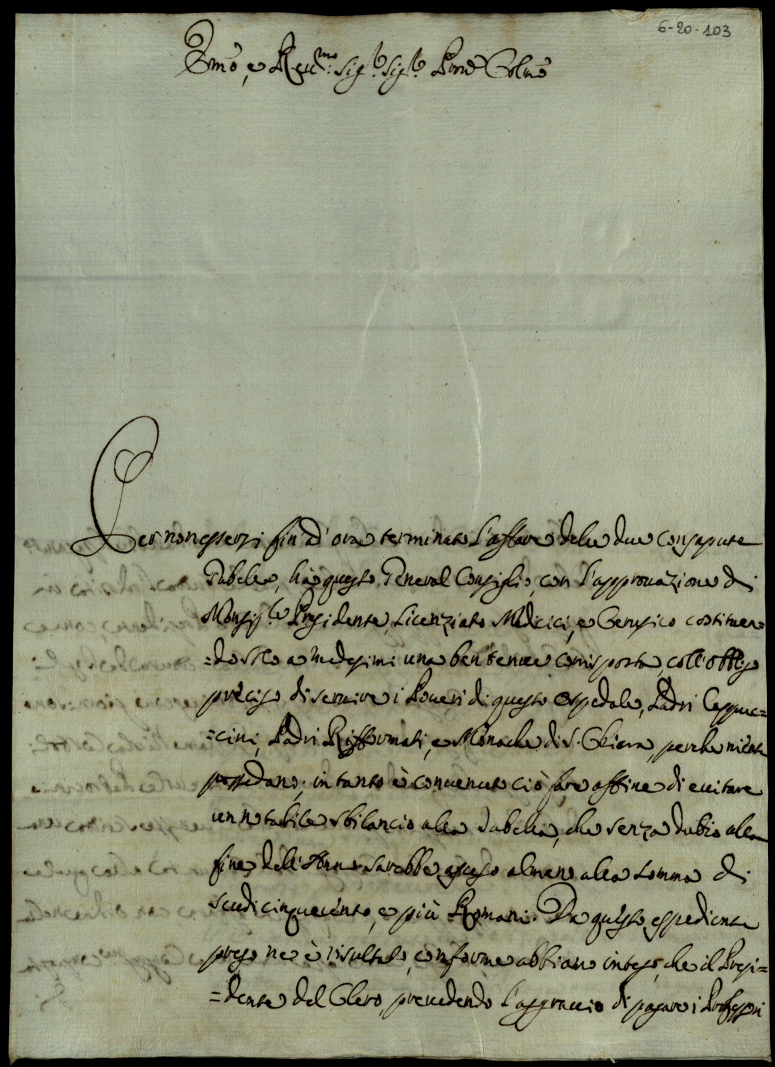 6-20-103
Emo, e Reu:mo Sig:r Sig:r Prone Colmo
Per non essersi fin ad' ora terminato l'affare delle due consapute
Tabelle, hà questo General Consiglio, con l'approvazione di
Monsig:r Presidente, licenziato Medici, e Cerusico costituen=
=do solo a medesimi una ben tenue corrisposta, coll'obbligo
preciso di servire i Poveri di questo Ospedale, Padri Cappuc=
=cini, Padri Rifformati, e Monache di S. Chiara perche niente
possedano; in tanto è convenuto ciò fare affine di evitare
un notabile sbilancio alla Tabella, che senza dubio alla
fine dell'Anno sarebbe asceso almeno alla somma di
scudi cinquecento, e più Romani. Da questo espediente
preso ne è risultato, conforme abbiamo inteso, che il Presi=
=dente del Clero, prevedendo l'aggravio di pagare i Professori